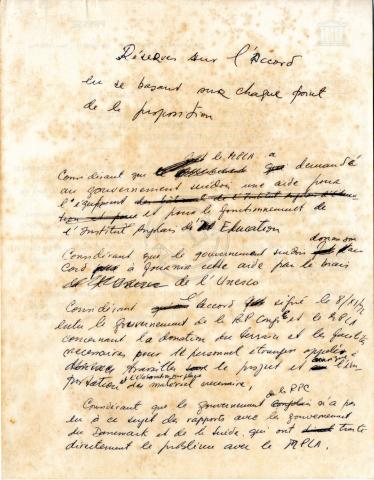 Réserves sur l'Accord
en se basant sur chaque point
de la proposition
Considérant que le MPLA a demandé
au gouvernement suédois une aide pour
l'équipement
et pour le fonctionnement de
l'Institut Angolais d'Education
Considérant que le gouvernement suédois
cord à donner cette aide par le biais
de l'Unesco
Considérant l'accord signé le
le gouvernement de la RP Congo et le MPLA
concernant la donation du terrain et les
nécessaires pour le personnel étranger appelé à
travailler le projet et
portation des matériel nécessaire,
Considérant que le gouvernement de la RPC n'a pas
eu à ce sujet des rapports avec le gouvernement
du Danemark et de la Suède, qui ont traité
directement le problème avec le MPLA.